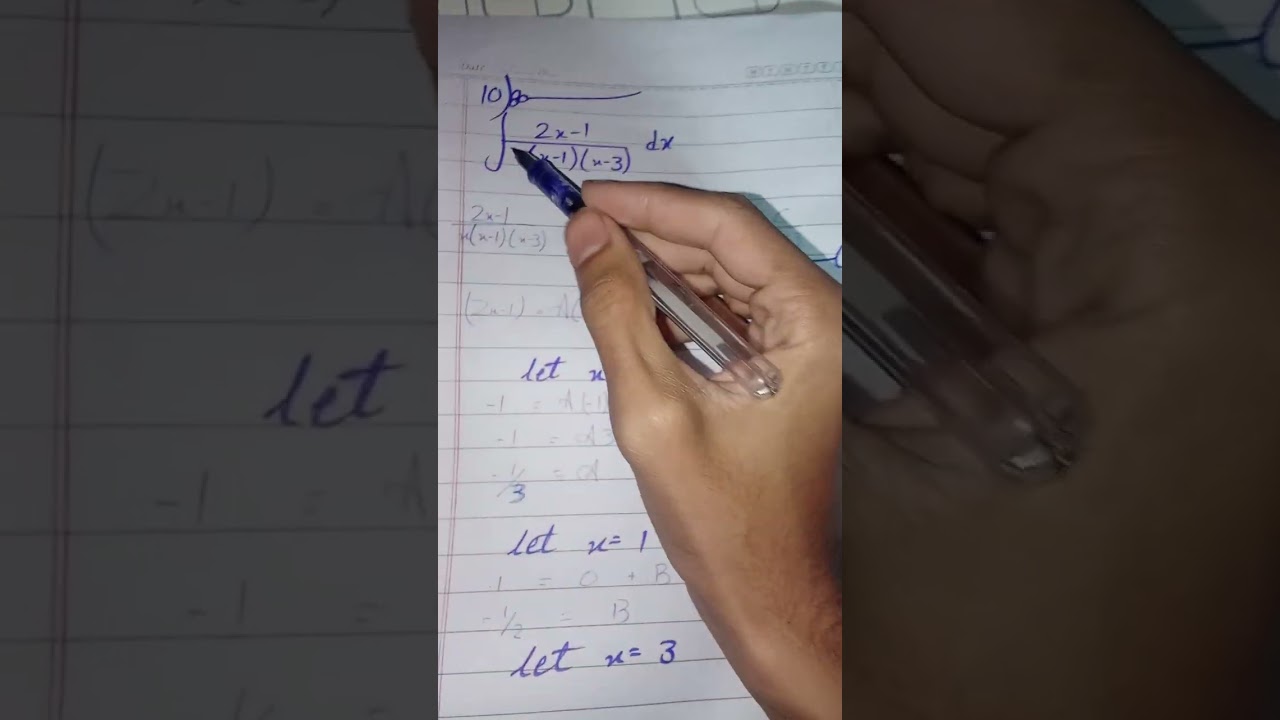 10)
∫ 2x-1 / (x-1)(x-3) dx
2x-1 / x(x-1)(x-3)
(2x-1) = A(
let x
-1 = A(-1
-1 = A3
-1/3 = A
let x=1
1 = 0 + B
-1/2 = B
let x=3